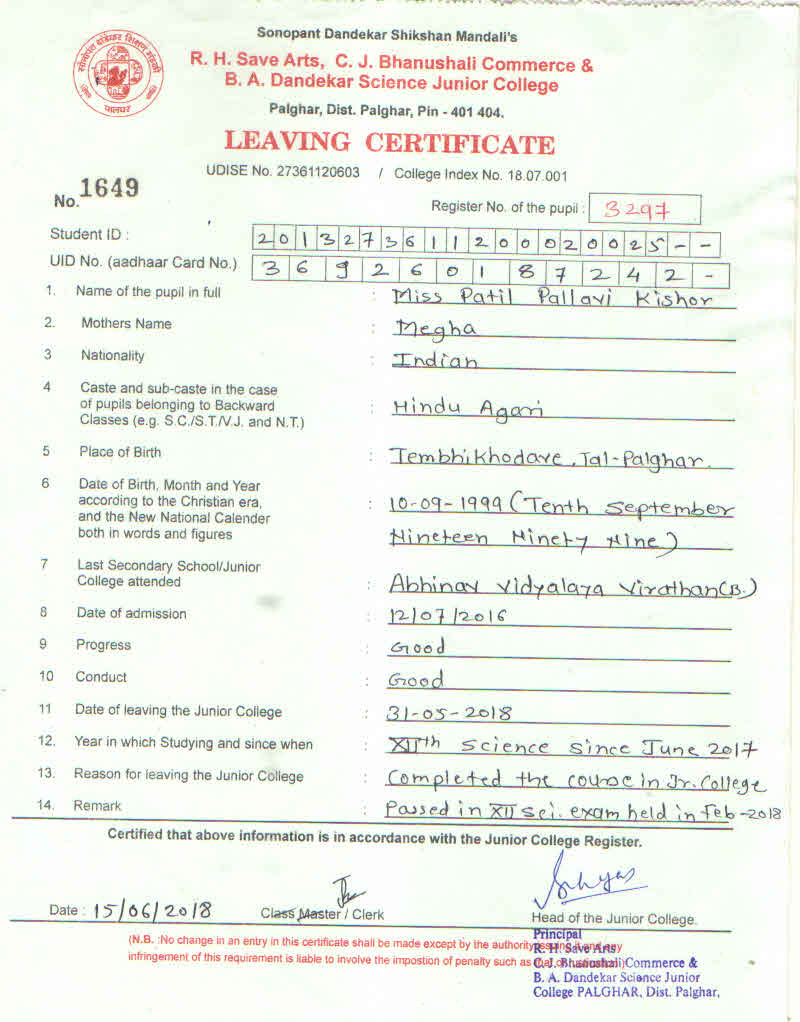 Sonopant Dandekar Shikshan Mandali's
R. H. Save Arts, C. J. Bhanushali Commerce &
B. A. Dandekar Science Junior College
Palghar, Dist. Palghar, Pin - 401 404.
LEAVING CERTIFICATE
UDISE No. 27361120603 / College Index No. 18.07.001
No. 1649
Register No. of the pupil : 3297
Student ID : 2013273611200020025--
UID No. (aadhaar Card No.) 369260187242-
1. Name of the pupil in full : Miss Patil Pallavi Kishor
2. Mothers Name : Megha
3 Nationality : Indian
4 Caste and sub-caste in the case
of pupils belonging to Backward : Hindu Agari
Classes (e.g. S.C./S.T./V.J. and N.T.)
5 Place of Birth : Tembhikhodave, Tal-Palghar.
6 Date of Birth, Month and Year
according to the Christian era, : 10-09-1999 (Tenth September
and the New National Calender
both in words and figures Nineteen Ninety Nine)
7 Last Secondary School/Junior
College attended : Abhinav Vidyalaya Virathan(B.)
8 Date of admission : 12/07/2016
9 Progress : Good
10 Conduct : Good
11 Date of leaving the Junior College : 31-05-2018
12. Year in which Studying and since when : XIIth Science since June 2017
13. Reason for leaving the Junior College : Completed the course in Jr. College
14. Remark : Passed in XII sci. exam held in Feb-2018
Certified that above information is in accordance with the Junior College Register.
Date : 15/06/2018 Class Master / Clerk
Head of the Junior College.
Principal
(N.B. :No change in an entry in this certificate shall be made except by the authority
R. H. Save Arts
infringement of this requirement is liable to involve the impostion of penalty such as
C. J. Bhanushali Commerce &
B. A. Dandekar Science Junior
College PALGHAR, Dist. Palghar,